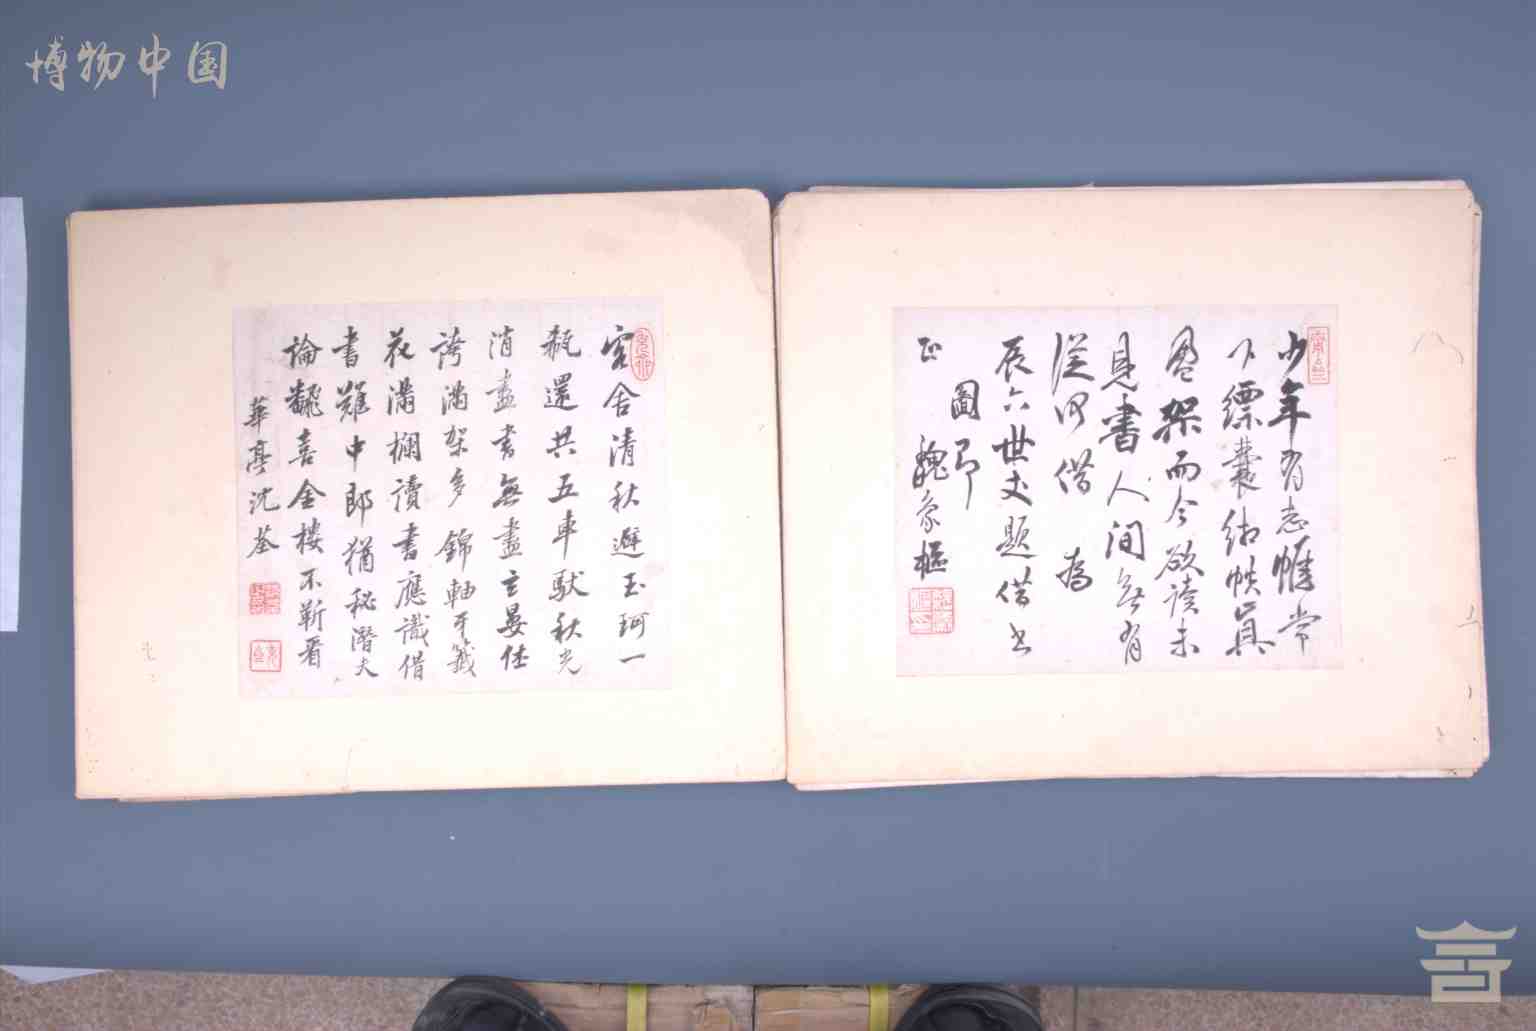 博物中国
少年有志帷常
下縹囊緗帙寘
盈架而今欲讀未
見書人間無有
從何借 為
辰六世丈題借書
圖即
正
魏象樞
客舍清秋避玉珂一
瓻還共五車馱秋光
消盡書無盡主晏佳
誇滿架多錦軸牙籤
花滿欄讀書應識借
書難中郎猶秘潛夫
論飜喜金樓不靳看
華亭沈荃